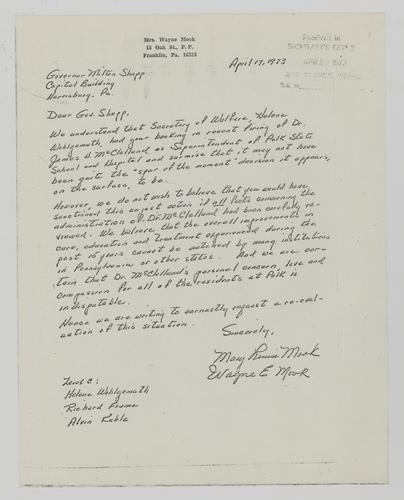 Mrs. Wayne Mook
13 Oak St., P.P.
Franklin, Pa. 16323
Received in
SECRETARY'S OFFICE
April 17, 1973
Governor Milton Shapp
Capitol Building
Harrisburg, Pa.
Dear Gov. Shapp,
We understand that Secretary of Welfare, Helene
Wohlgemuth, had your backing in recent firing of Dr.
James H. McClelland as Superintendent of Polk State
School and Hospital and surmise that it may not have
been quite the "spur of the moment" decision it appears,
on the surface, to be.
However, we do not wish to believe that you would have
sanctioned this unjust action if all facts concerning the
administration of Dr. McClelland had been carefully re-
viewed. We believe that the overall improvements in
care, education and treatment experienced during the
past 15 years cannot be matched by many institutions
in Pennsylvania or other states. And we are cer-
tain that Dr. McClelland's personal concern, love and
compassion for all of the residents at Polk is
indisputable.
Hence we are writing to earnestly request a re-eval-
uation of this situation.
Sincerely,
Mary Louise Mook
Wayne E. Mook
Xerox c:
Helene Wohlgemuth
Richard Frame
Alvin Kahle